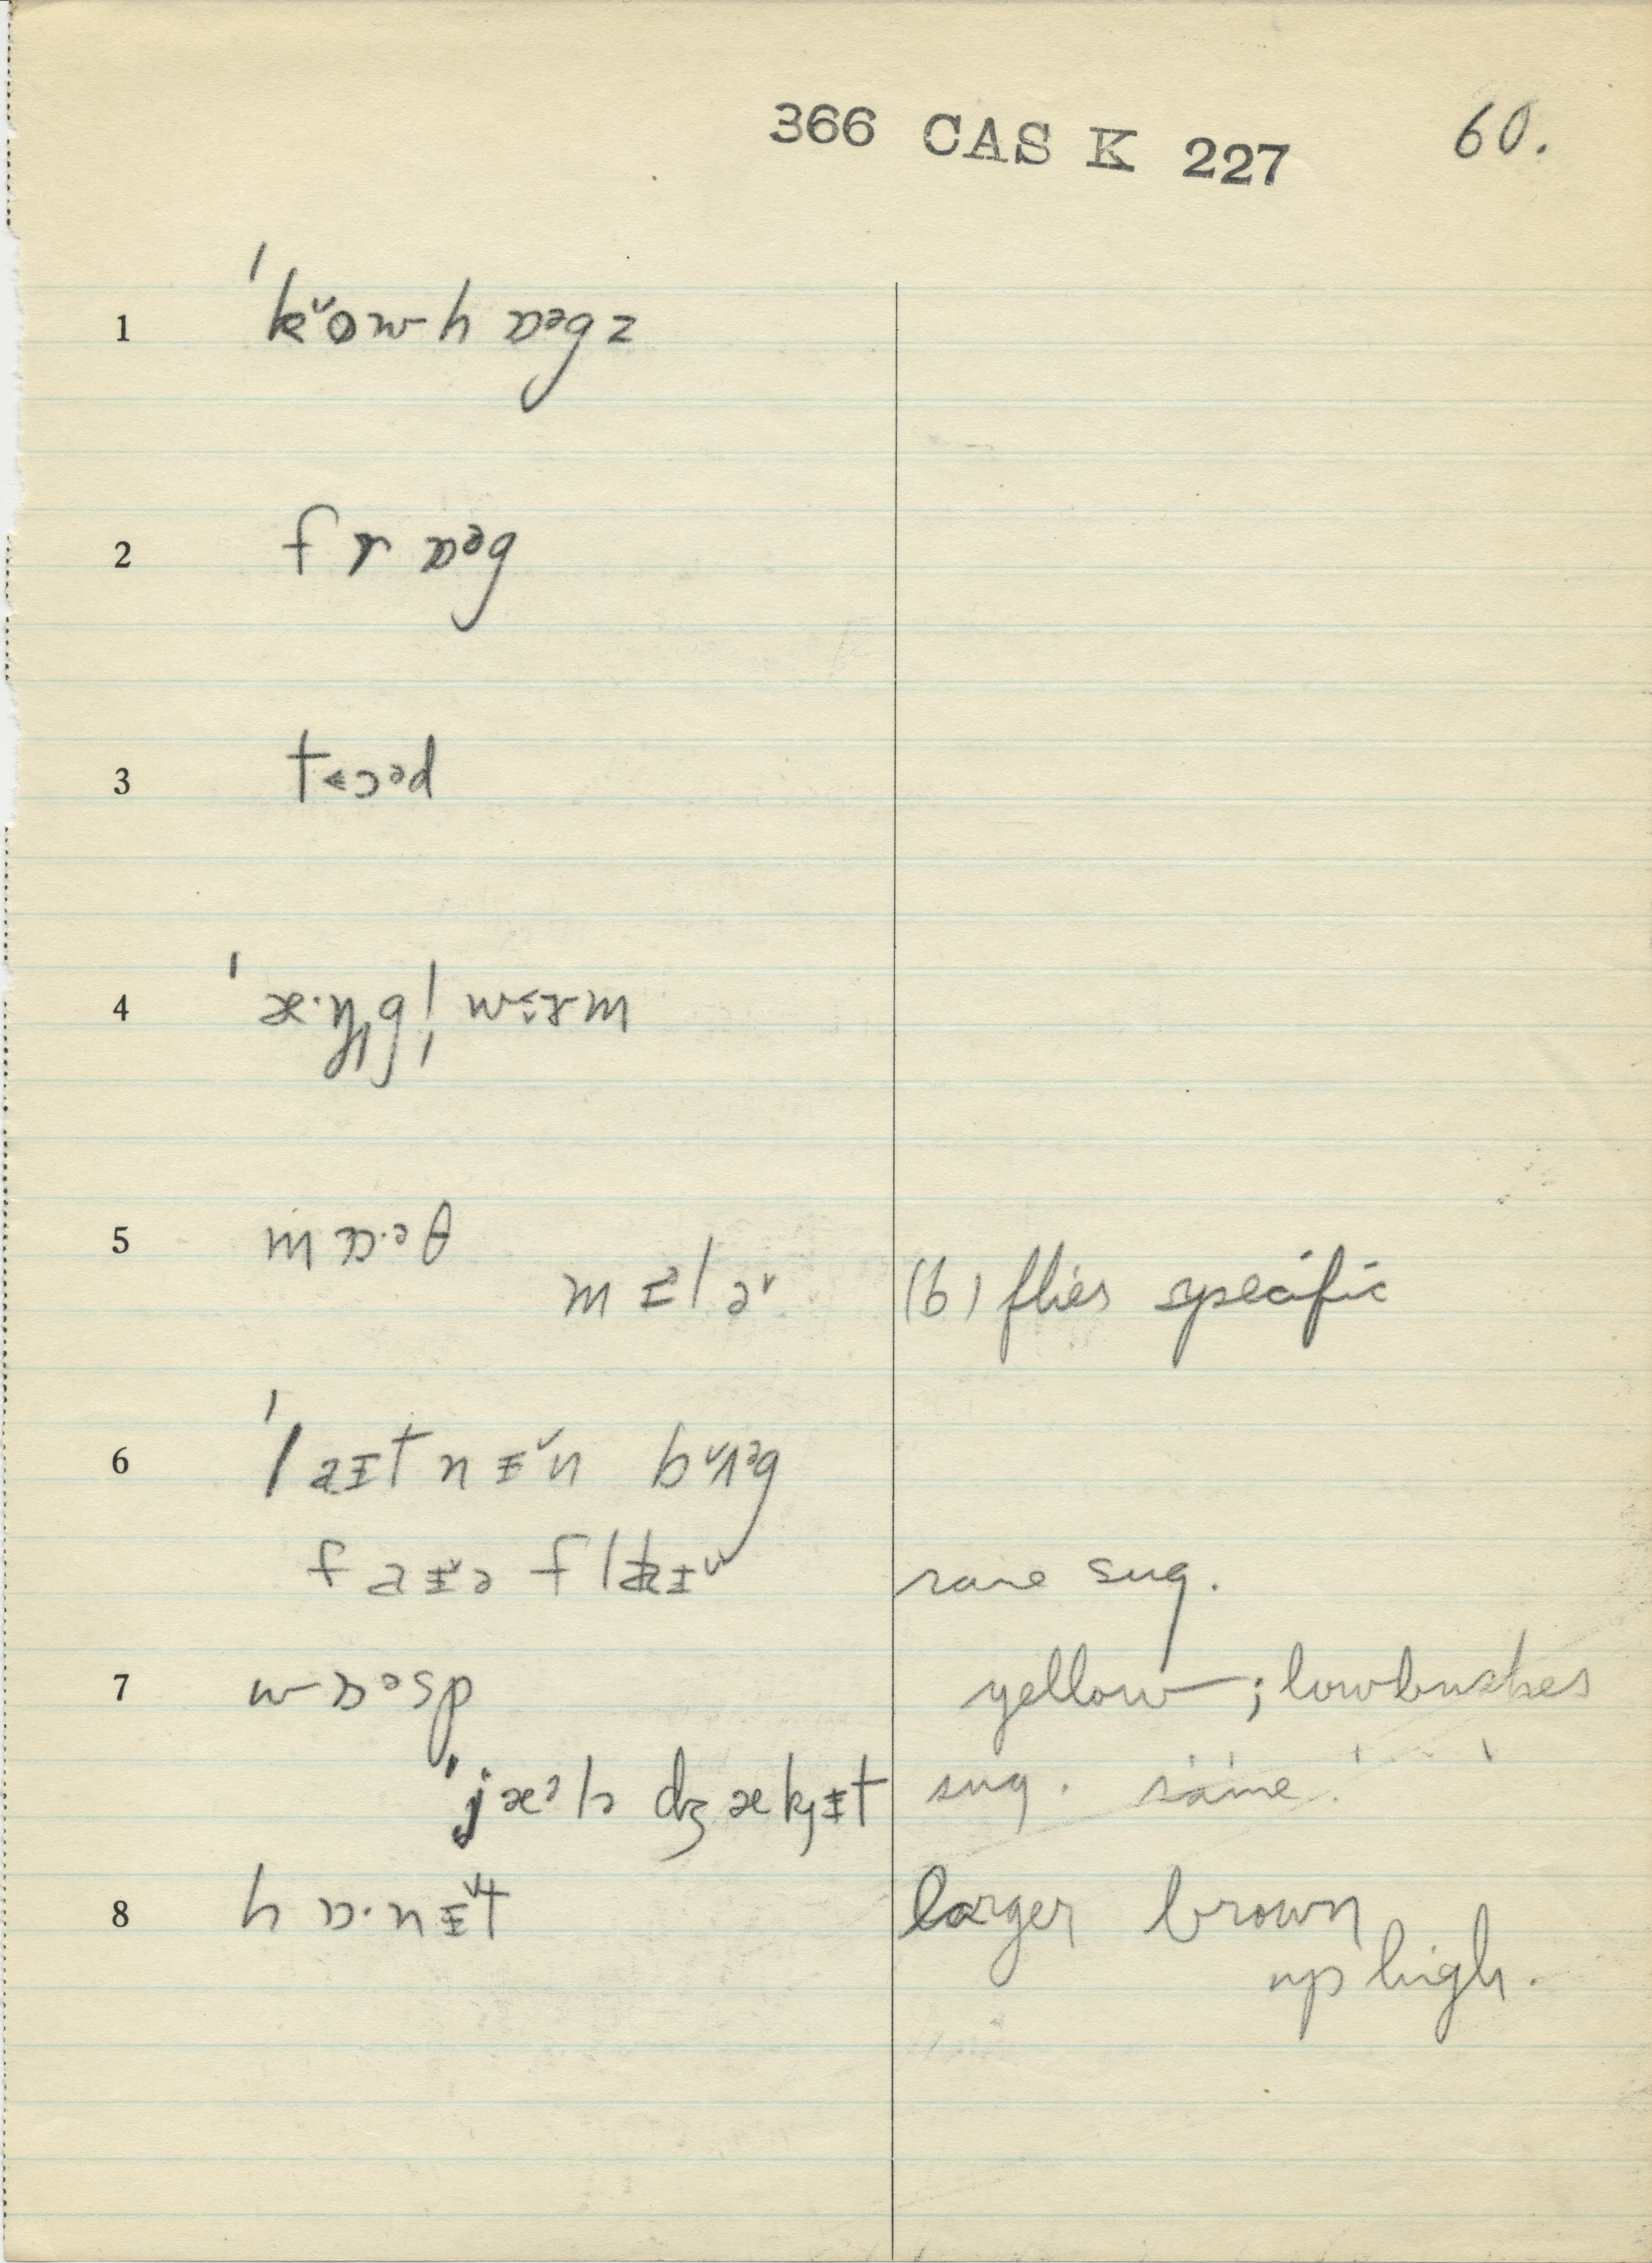 366 CAS K 227 60.
1 ˈk̬ɵʷh ɒᵊgz
2 fr ɒᵊg
3 t<ɔᵊd
4 ˈæ·ŋgl̩ wɜ˞m
5 mɒ·ᵊθ
mɪlɚ (b) flies specific
6 ˈlaɪtnɪ̆n bʌᵊg
faɪɚ flaɪ rare sug.
7 wɒᵊsp yellow; low bushes
ˈjæᵊlɚ dʒækɪt sug. same
8 hɒ·nɪ̆t larger brown
up high.